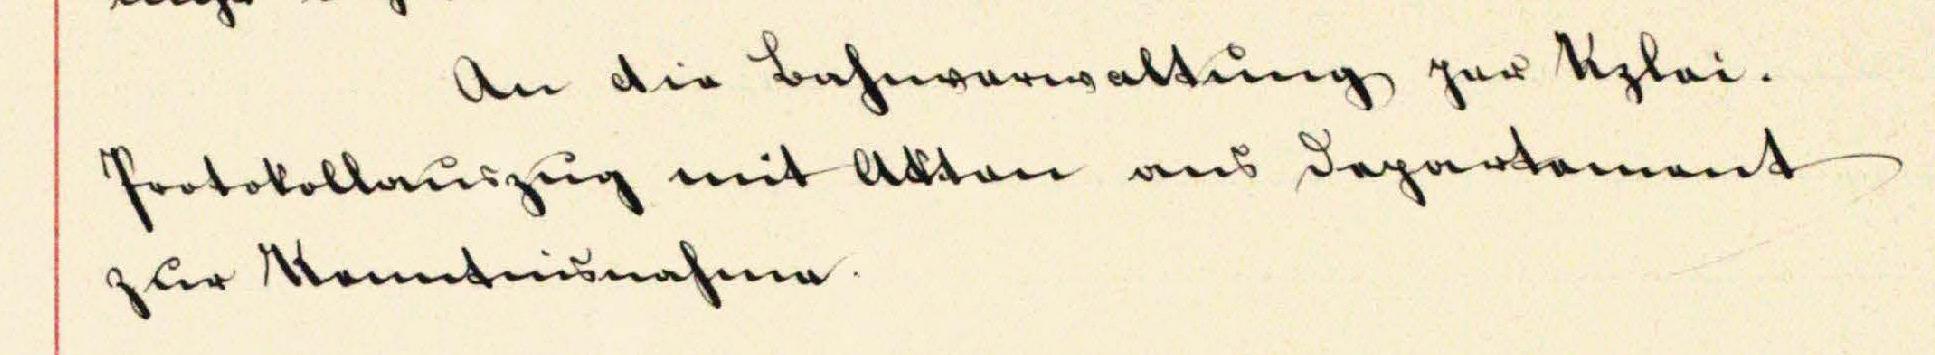 An die Bahnverwaltung per Kzlei.
Protokollauszug mit Akten ans Departement
zur Kenntnisnahme.